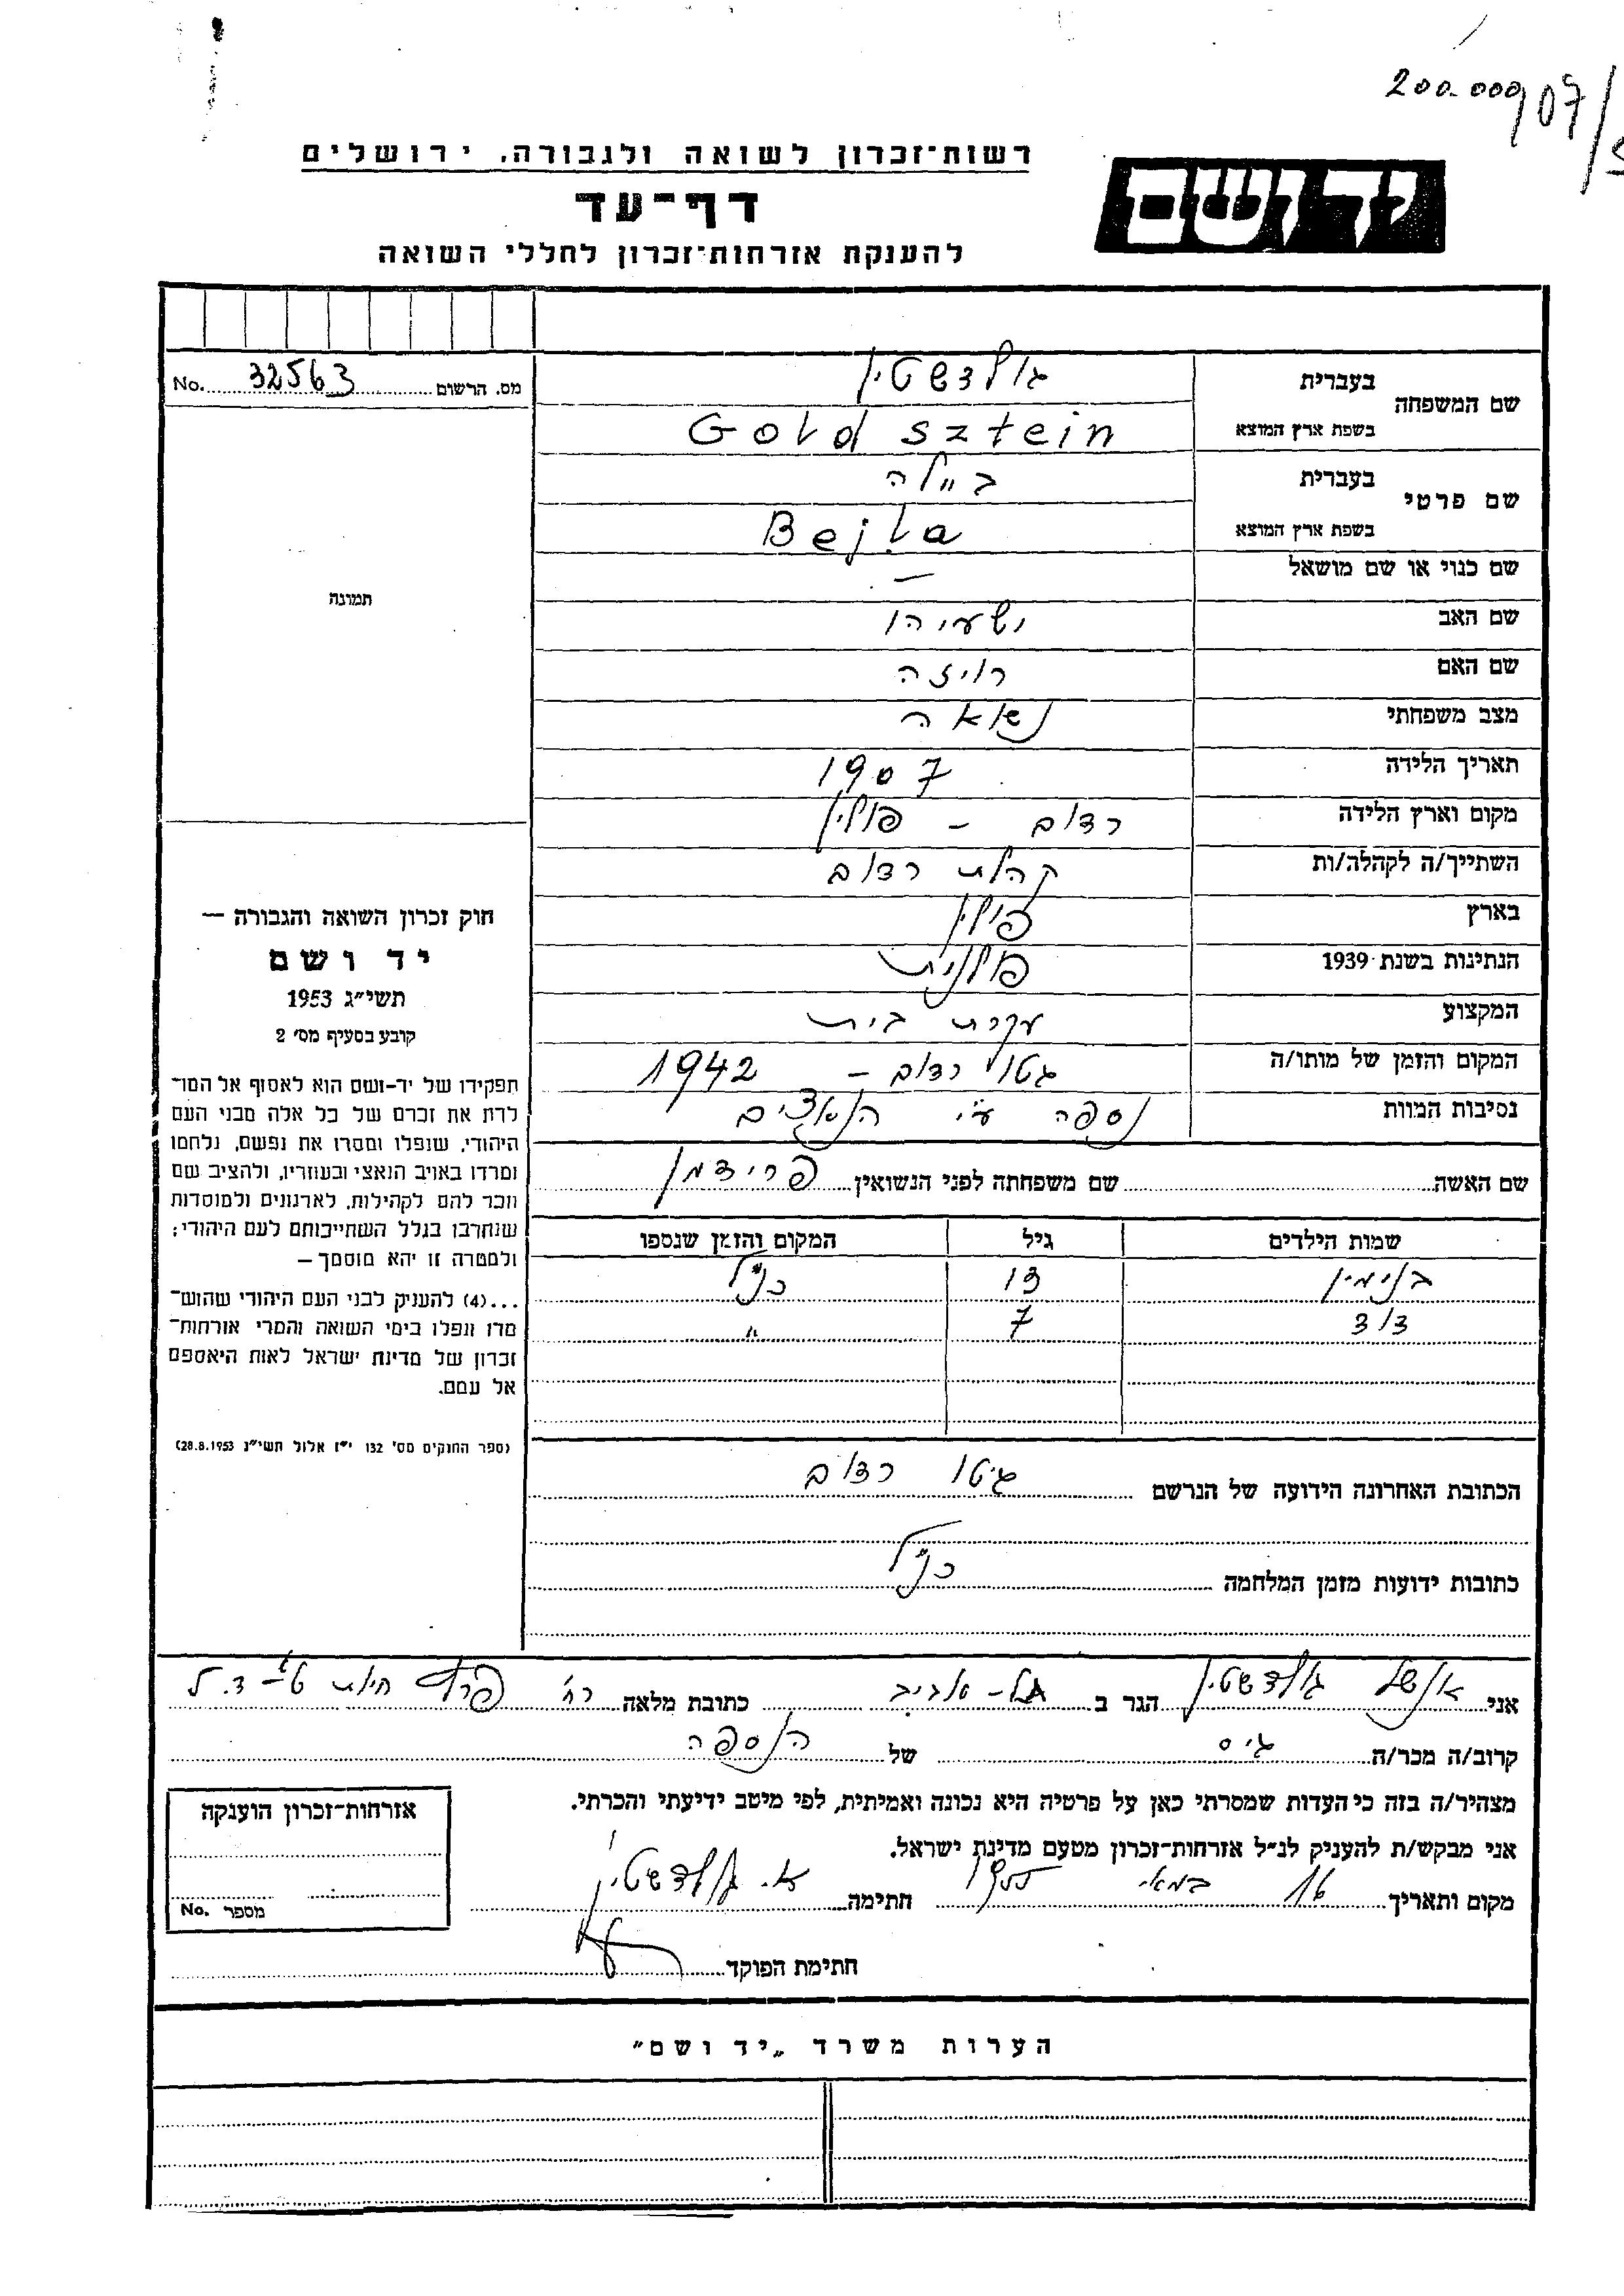 200.000/07/
יד ושם
רשות־זכרון לשואה ולגבורה, ירושלים
דף־עד
להענקת אזרחות־זכרון לחללי השואה
מס. הרשום 32563 No.
תמונה
שם המשפחה
בעברית גולדשטין
בשפת ארץ המוצא Goldsztein
שם פרטי
בעברית ביילה
בשפת ארץ המוצא Bejla
שם כנוי או שם מושאל —
שם האב ישעיהו
שם האם רויזה
מצב משפחתי נשואה
תאריך הלידה 1907
מקום וארץ הלידה רדום – פולין
השתייך/ה לקהלה/ות קהלת רדום
בארץ פולין
הנתינות בשנת 1939 פולנית
המקצוע עקרת בית
המקום והזמן של מותו/ה גטו רדום – 1942
נסיבות המוות נספה ע"י הנאצים
שם האשה שם משפחתה לפני הנשואין פרידמן
שמות הילדים גיל המקום והזמן שנספו
בנימין 13 כנ"ל
דוד 7 "
הכתובת האחרונה הידועה של הנרשם גיטו רדום
כתובות ידועות מזמן המלחמה כנ"ל
חוק זכרון השואה והגבורה —
יד ושם
תשי"ג 1953
קובע בסעיף מס' 2
תפקידו של יד-ושם הוא לאסוף אל המו־
לדת את זכרם של כל אלה מבני העם
היהודי, שנפלו ומסרו את נפשם, נלחמו
ומרדו באויב הנאצי ובעוזריו, ולהציב שם
וזכר להם לקהילות, לארגונים ולמוסדות
שנחרבו בגלל השתייכותם לעם היהודי;
ולמטרה זו יהא מוסמך —
...(4) להעניק לבני העם היהודי שהוש־
מדו ונפלו בימי השואה והמרי אזרחות־
זכרון של מדינת ישראל לאות היאספם
אל עמם.
(ספר החוקים מס' 132 י"ז אלול תשי"ג 28.8.1953)
אני אנשל גולדשטין הגר ב תל-אביב כתובת מלאה רח'
קרוב/ה מכר/ה גיס של הנספה
מצהיר/ה בזה כי העדות שמסרתי כאן על פרטיה היא נכונה ואמיתית, לפי מיטב ידיעתי והכרתי.
אני מבקש/ת להעניק לנ"ל אזרחות־זכרון מטעם מדינת ישראל.
מקום ותאריך 16 במאי 1955 חתימה א. גולדשטין
חתימת הפוקד
אזרחות־זכרון הוענקה
מספר No.
הערות משרד „יד ושם"